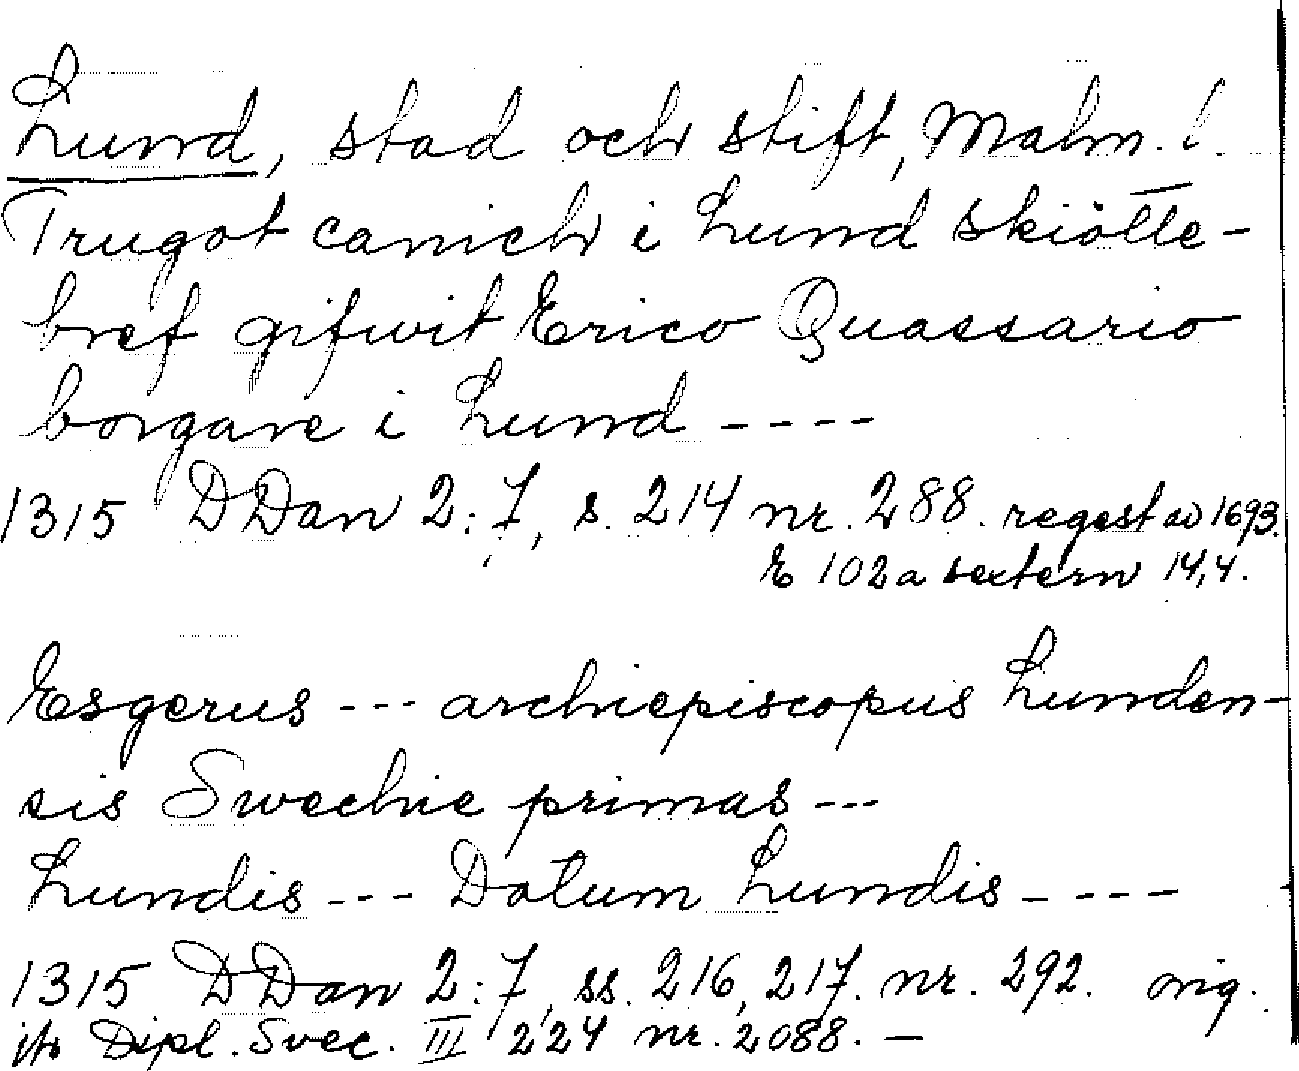 Lund, stad och stift, Malm. l.
Trugot canich i Lund skiötte-
bref gifwit Erico Quassario
borgare i Lund ----
1315 DDan 2:7, s. 214 nr. 288. regest av 1693.
E 102a sextern 14,4.
Esgerus --- archiepiscopus Lunden-
sis Swechie primas ---
Lundis --- Datum Lundis ----
1315 DDan 2:7, ss. 216, 217. nr. 292. orig.
jfr Dipl. Svec. III 224 nr. 2088. —